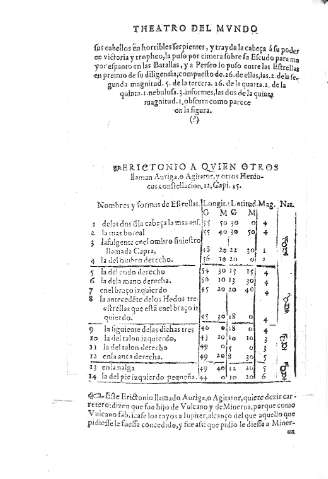 THEATRO DEL MVNDO
sus cabellos en horribles serpientes, y trayda la cabeça à su poder
en victoria y tropheo, la puso por cimera sobre su Escudo para ma
yor espanto en las Batallas, y a Perseo lo puso entre las Estrellas
en premio de su diligencia, compuesto de .26. de ellas, las .2. de la se
gunda magnitud. 5. de la tercera. 16. de la quarta. 2. de la
quinta. 1. nebulosa. 3. informes, las dos de la quinta
magnitud. 1, obscura como parece
en la figura.
ERICTONIO A QVIEN OTROS
llaman Auriga, o Agitator, y otros Herio-
cus constellacion, 12. Capi. 15.
Nombres y formas de Estrellas. Longit. Latitud. Mag. Nat.
G M G M
1 de las dos d la cabeça la mas aus. 55 50 30 0 4
2 la mas boreal 55 40 30 50 4
3 la fulgente en el ombro siniestro
llamada Capra, 48 20 22 30 1
4 la del ombro derecho. 56 10 20 0 2
5 la del codo derecho 54 30 15 15 4
6 la de la mano derecha. 56 10 13 30 4
7 en el braço izquierdo 45 20 20 40 4
8 la antecedēte de los Hedus tres
estrellas que está en el braço iz
quierdo. 45 30 18 0 4
9 la siguiente de las dichas tres 46 0 18 0 4
10 la del talon izquierdo. 43 20 10 10 3
11 la del talon derecho 49 0 5 0 3
12 en la anca derecha. 49 20 8 30 5
13 en la nalga 49 40 12 20 5
14 la del pie izquierdo pequeña. 44 0 10 20 6
Este Erictonio llamado Auriga, o Agitator, quiere dezir car-
retero: dizen que fue hijo de Vulcano y de Minerua, porque como
Vulcano fabricasse los rayos a Iupiter, alcançò del que aquello que
pidiesse le fuesse concedido, y fue assi que pidio le diesse a Miner-